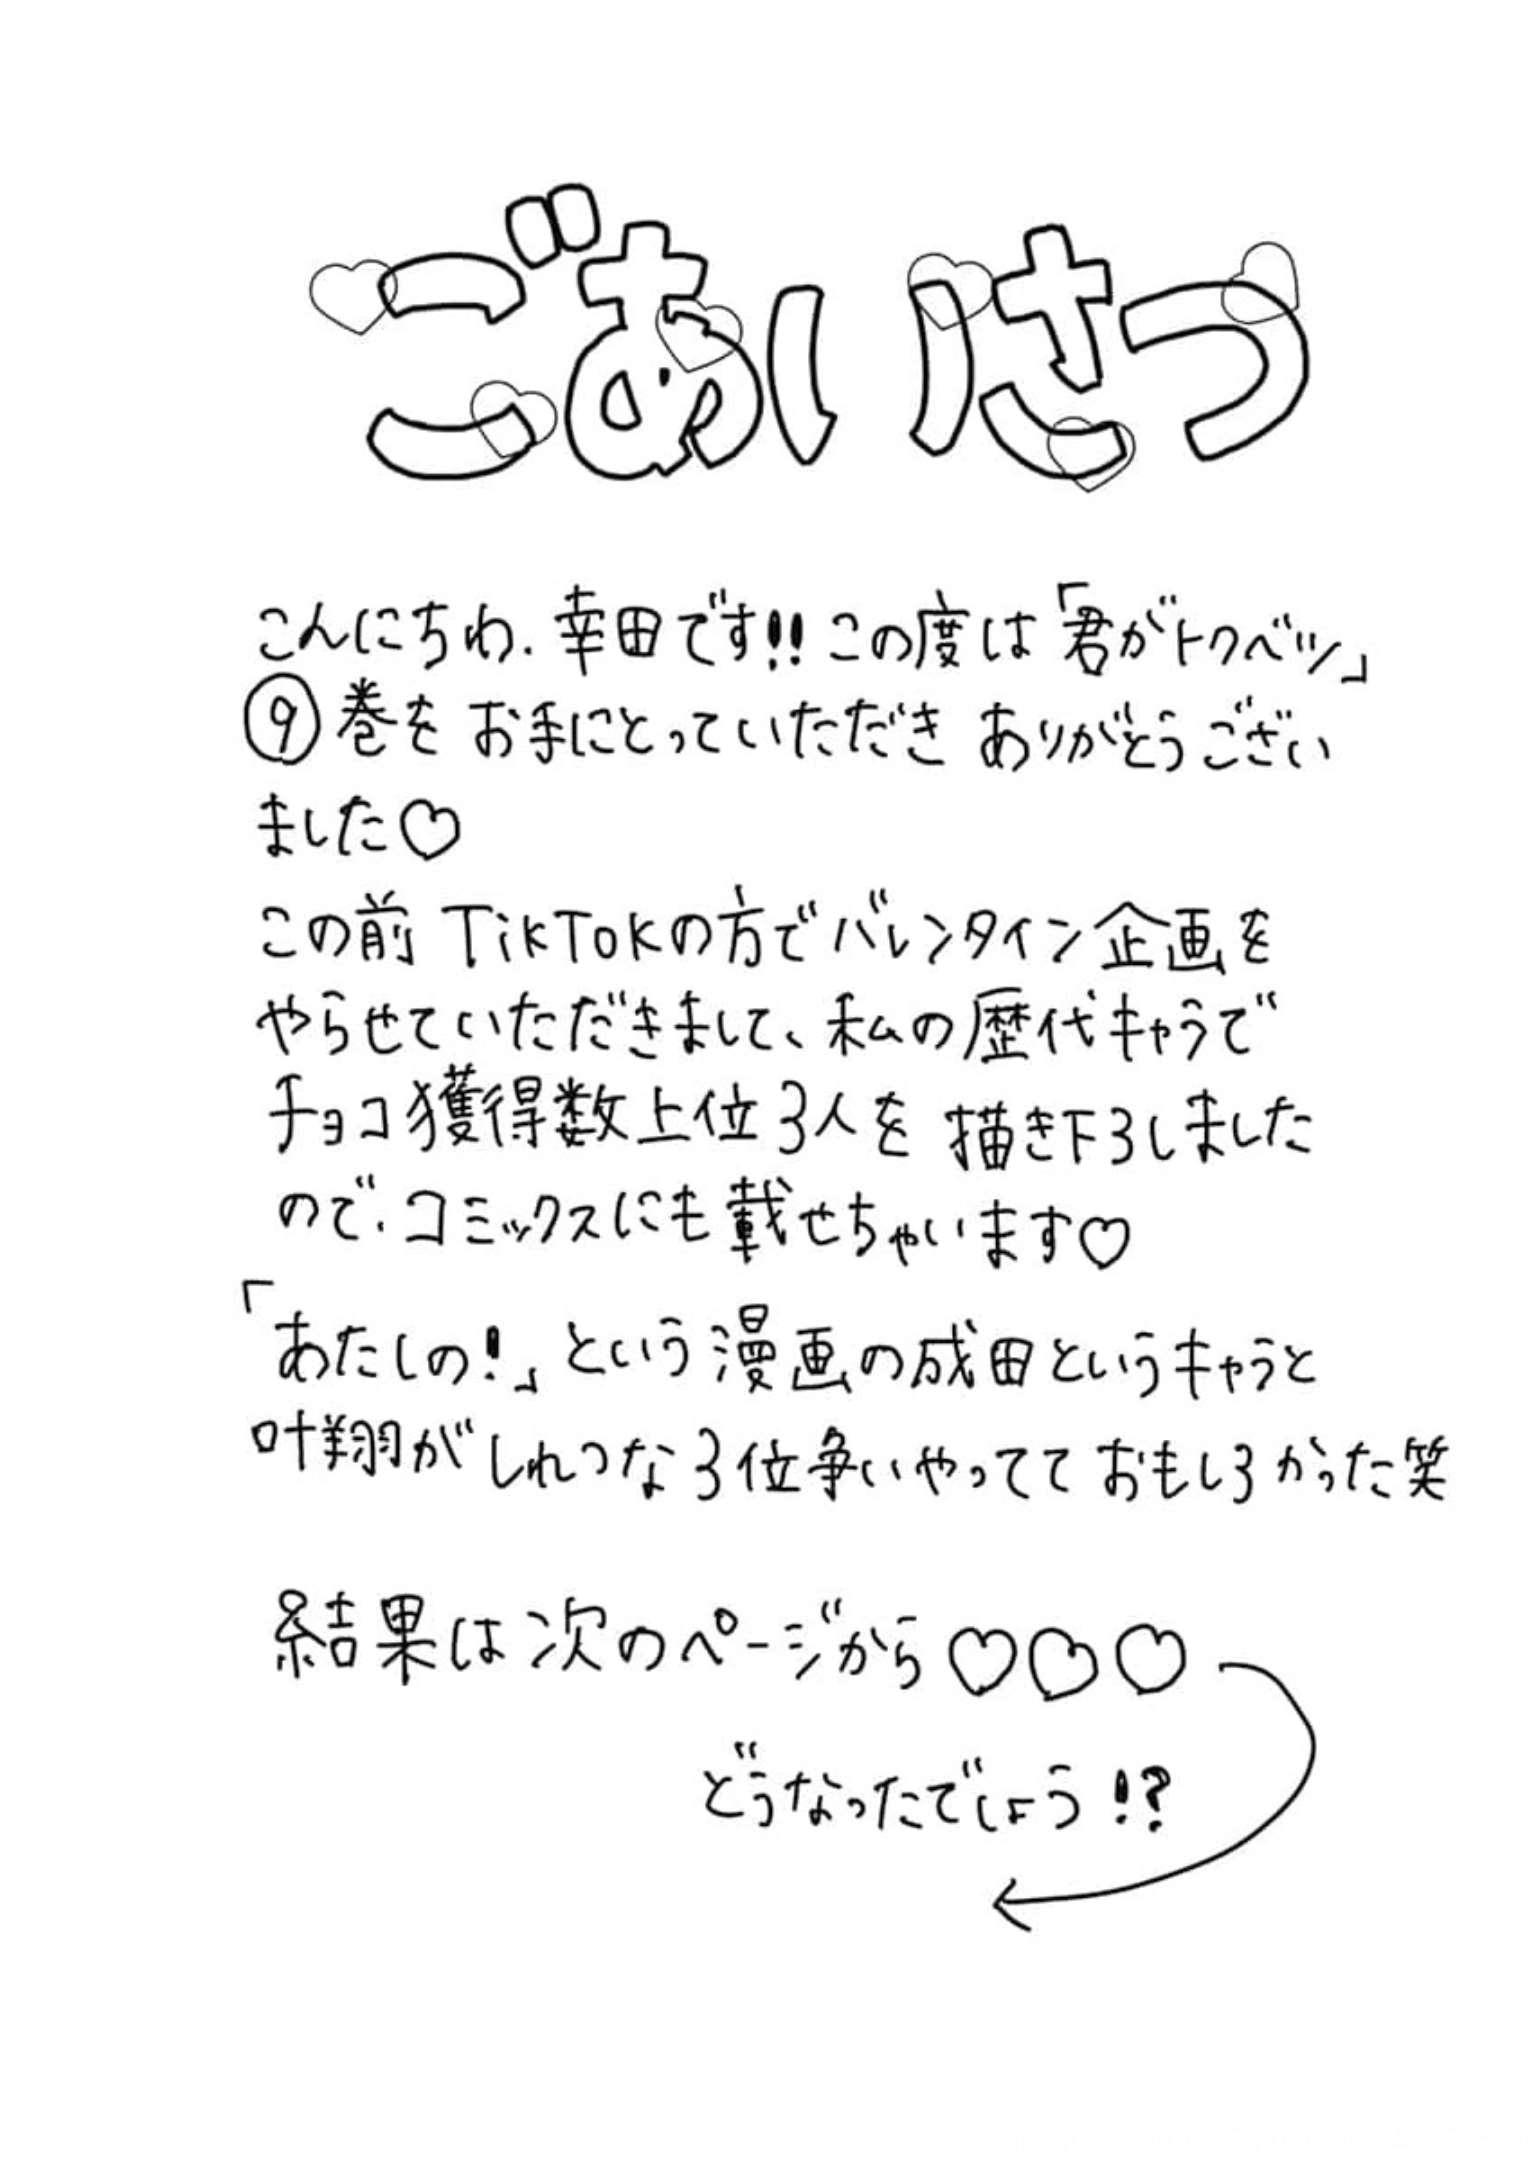 ごあいさつ
こんにちわ、幸田です!!この度は「君がトクベツ」
⑨巻を お手にとっていただき ありがとうござい
ました♡
この前 TikTokの方でバレンタイン企画を
やらせていただきまして、私の歴代キャラで
チョコ獲得数上位3人を 描き下ろしました
ので、コミックスにも載せちゃいます♡
「あたしの!」という漫画の成田というキャラと
叶翔がしれつな3位争いやってて おもしろかった笑
結果は次のページから♡♡♡
どうなったでしょう!?